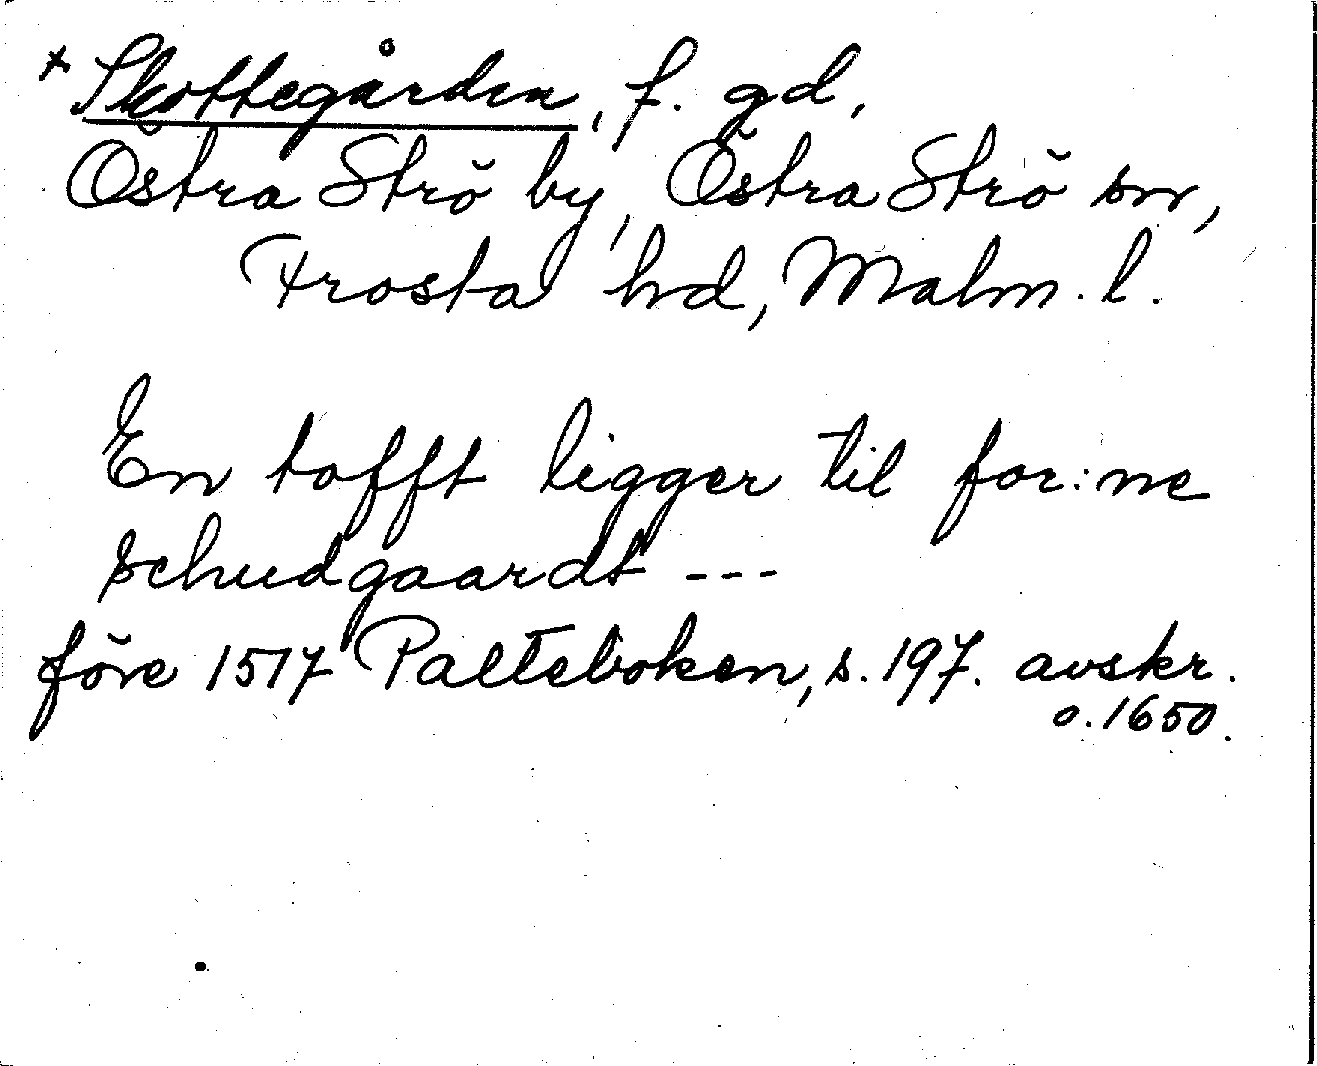 * Skottegården, f. gd,
Östra Strö by, Östra Strö sn,
Frosta hd, Malm. l.
En tofft ligger til for:ne
schudgaardt ---
före 1517 Palteboken, s. 197. avskr.
o. 1650.